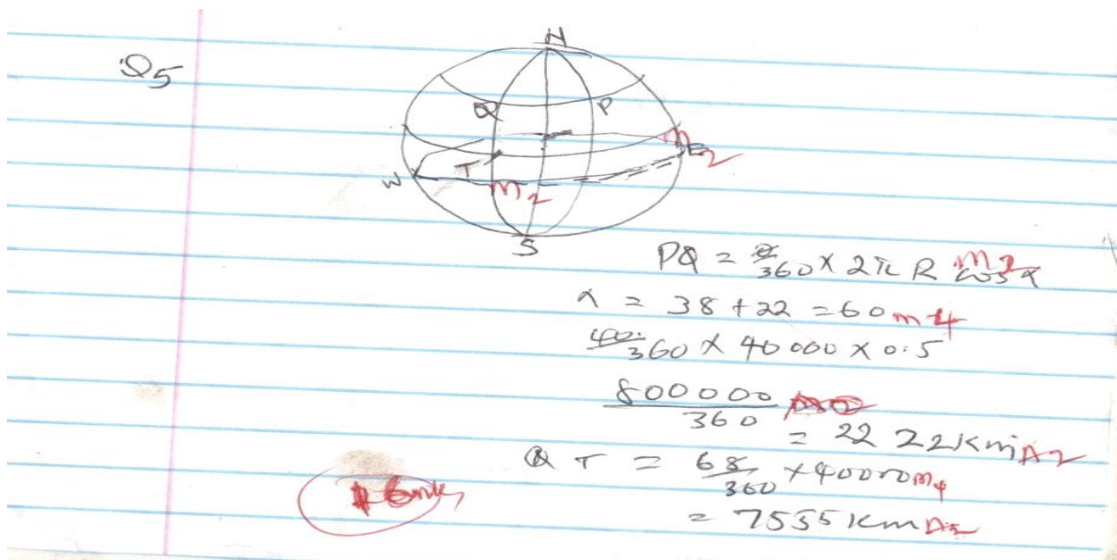 Q5
N
Q P
T
W E
M2
M2
S
PQ = θ/360 × 2π R cos α M2
α = 38 + 22 = 60 m4
40/360 × 40 000 × 0.5
800000/360
= 22 22 Km A2
Q T = 68/360 × 40000 m4
= 7555 Km A2
6mk